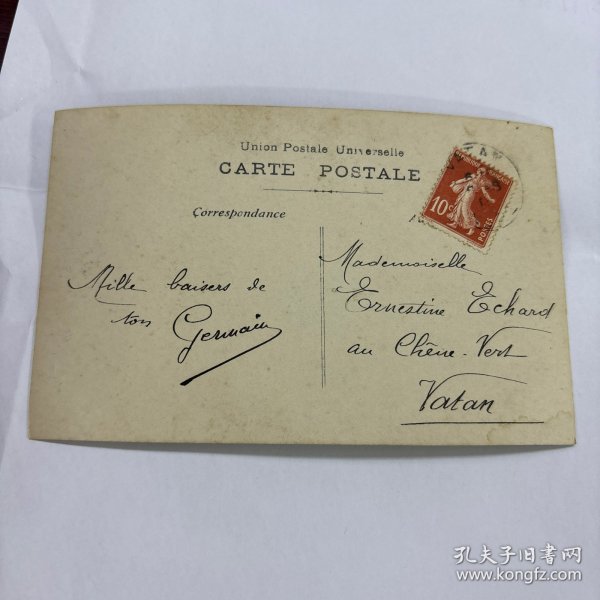 Union Postale Universelle
CARTE POSTALE
Correspondance
Mille baisers de
ton Germain
Mademoiselle
Ernestine Echard
au Chêne-Vert
Vatan
10c
POSTES
孔夫子旧书网
www.kongfz.com